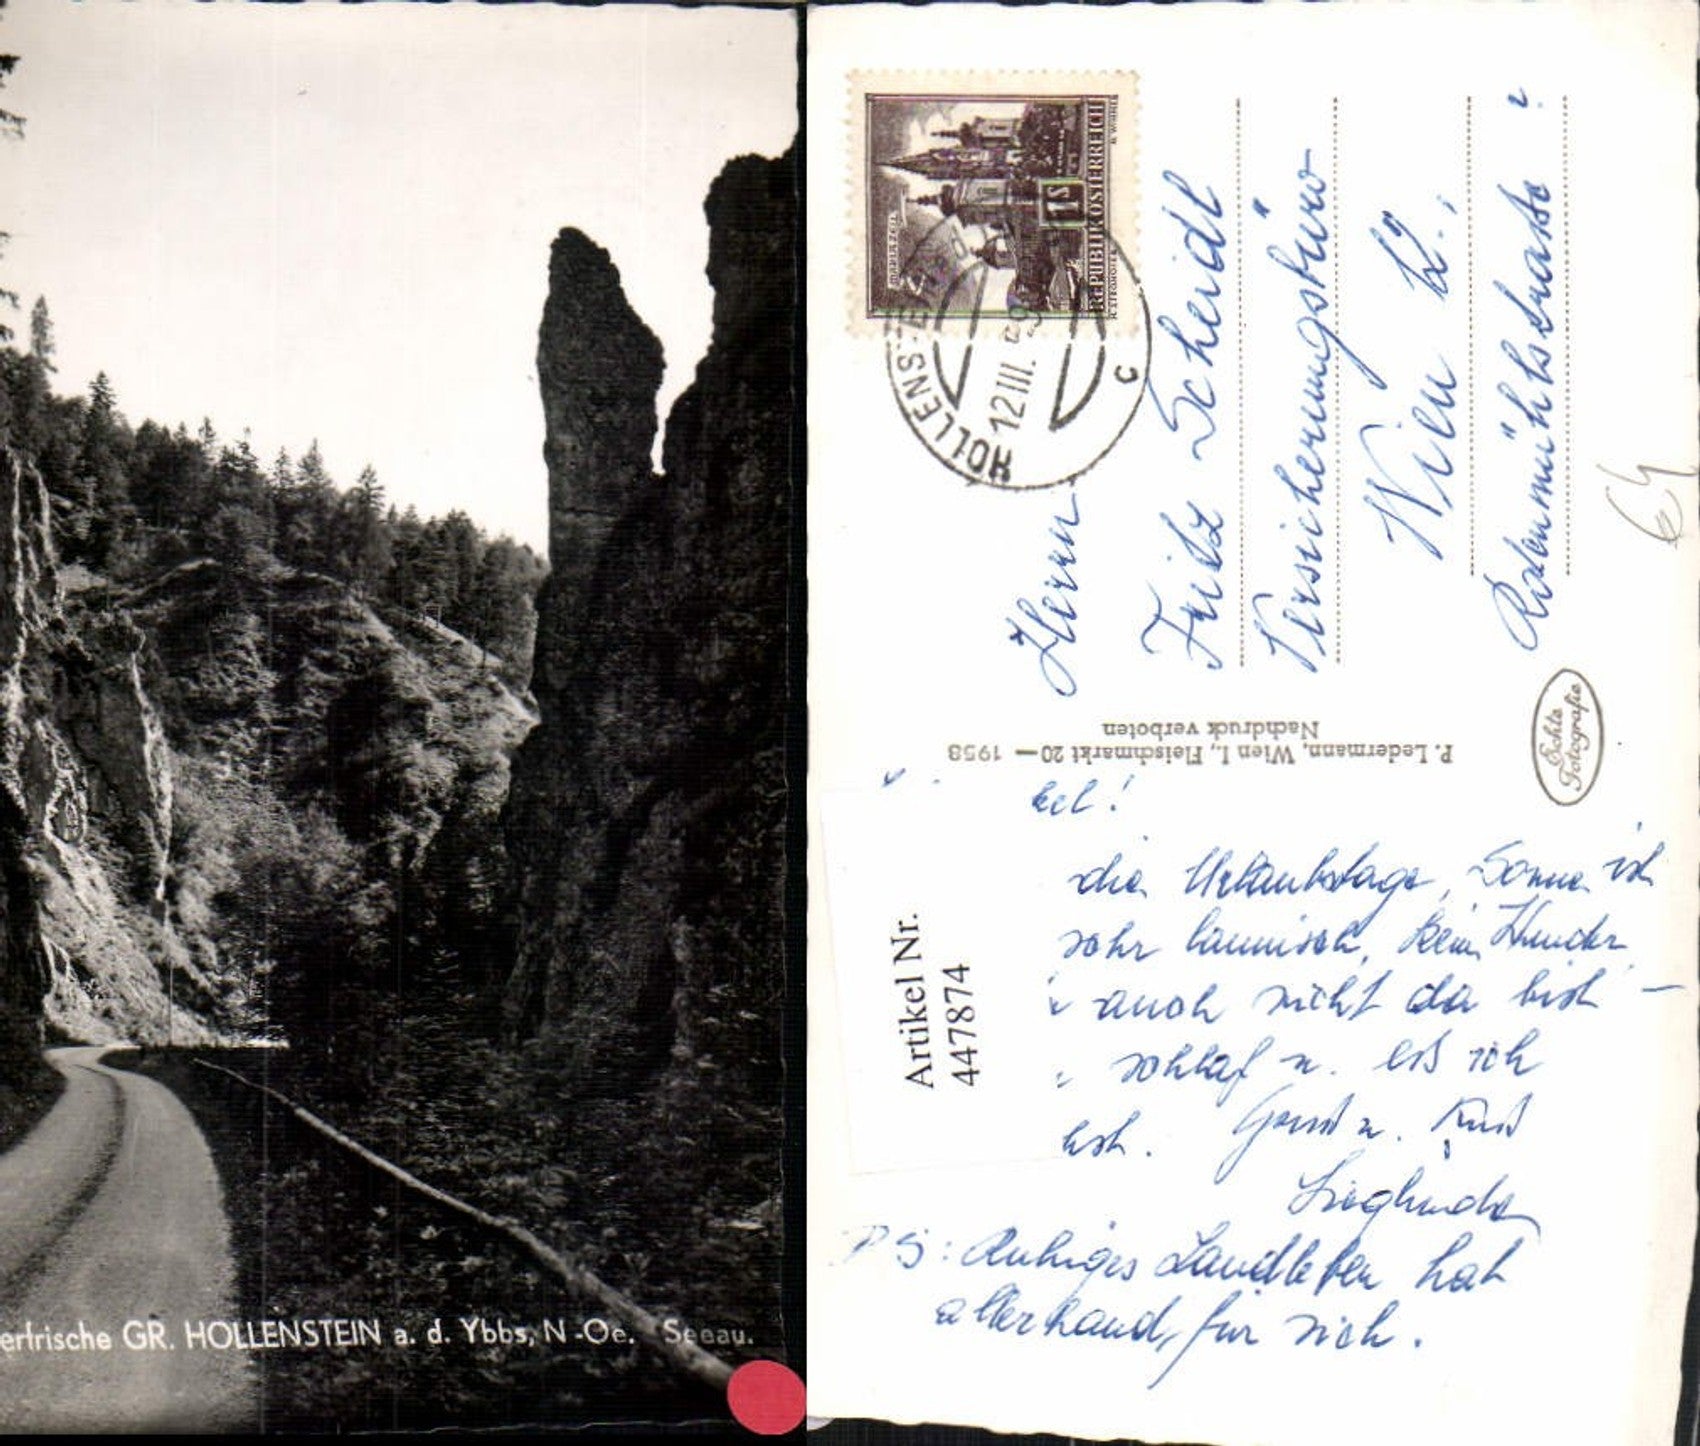 erfrische GR. HOLLENSTEIN a. d. Ybbs, N-Oe. Seeau.
MARIAZELL
1 S
REPUBLIK ÖSTERREICH
HOLLENSTEIN
12.III.
c
Herrn
Fritz Scheidl
Versicherungsbüro
Wien 62.,
P. Ledermann, Wien I., Fleischmarkt 20 — 1958
Nachdruck verboten
Echte
Fotografie
Artikel Nr.
447874
kel!
die Urlaubstage, Sonne ist
sehr launisch, kein Wunder
auch nicht da bist –
schlaf u. eß ich
Gruß u. Kuß
Sieglinde
PS: Ruhiges Landleben hat
allerhand für sich.